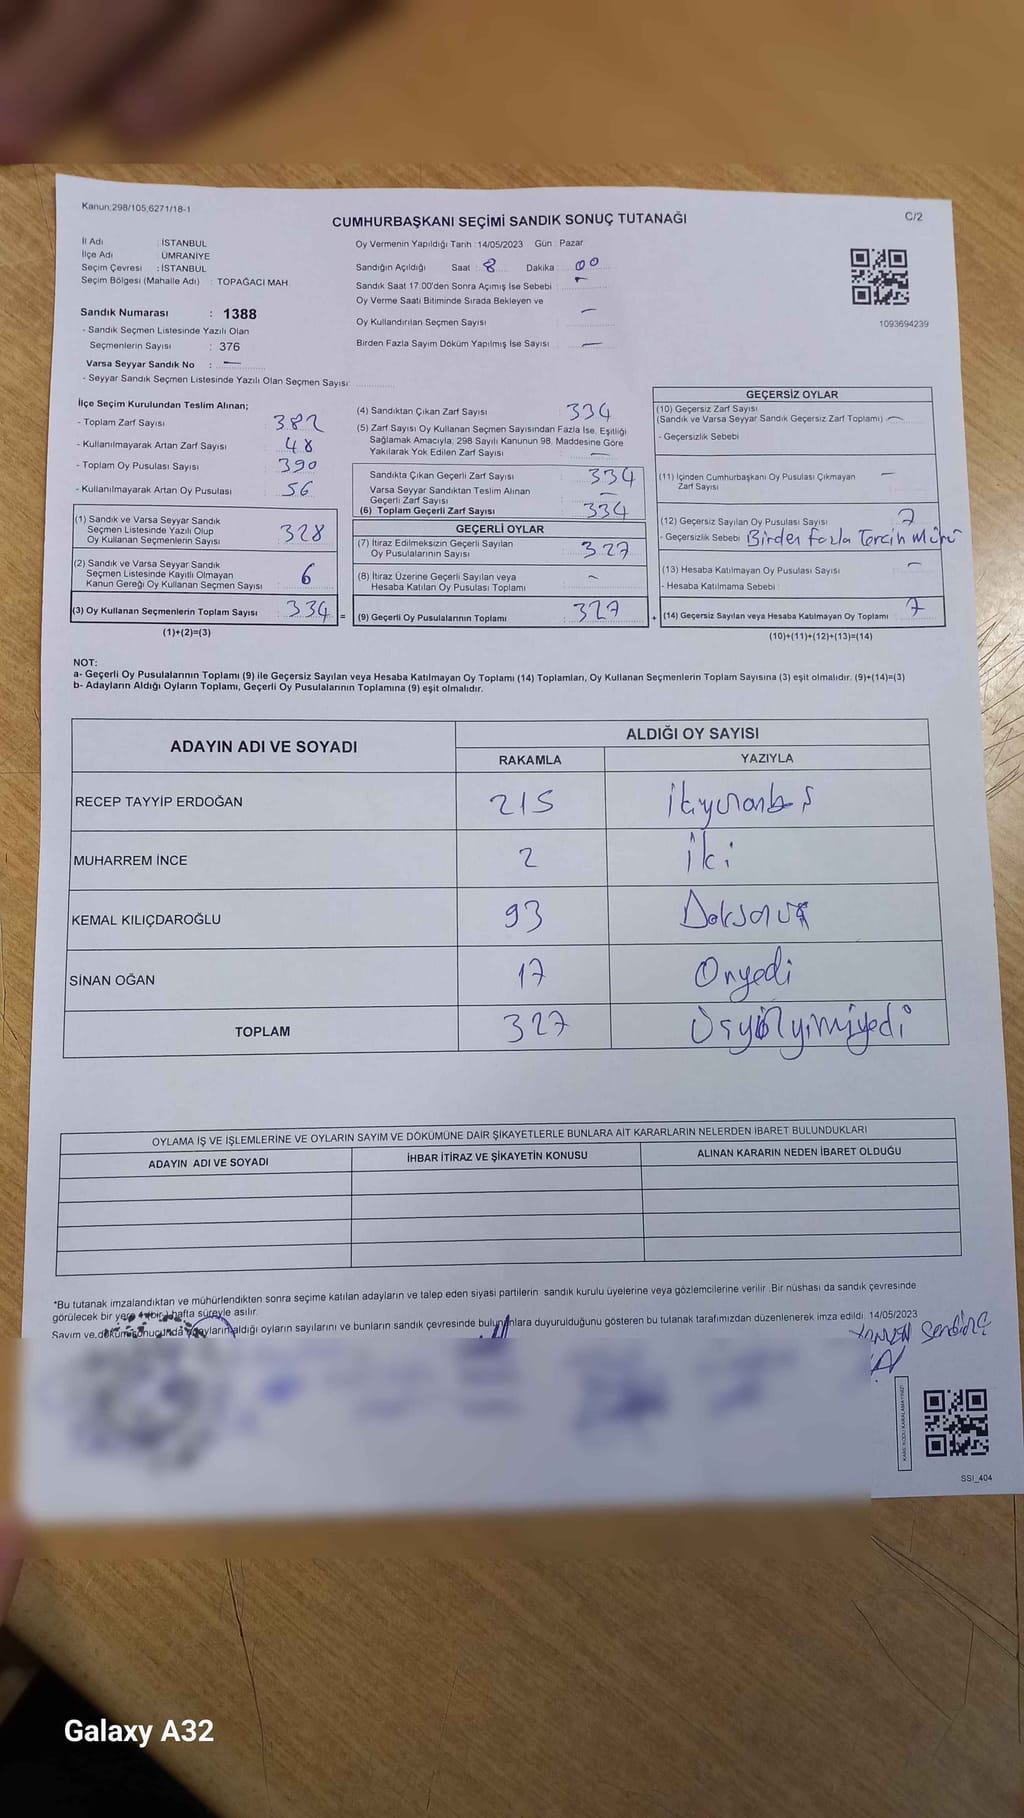 Kanun:298/105,6271/18-1
CUMHURBAŞKANI SEÇİMİ SANDIK SONUÇ TUTANAĞI
C/2
İl Adı : İSTANBUL
İlçe Adı : ÜMRANİYE
Seçim Çevresi : İSTANBUL
Seçim Bölgesi (Mahalle Adı) : TOPAĞACI MAH.
Sandık Numarası : 1388
- Sandık Seçmen Listesinde Yazılı Olan
Seçmenlerin Sayısı : 376
Varsa Seyyar Sandık No : —
- Seyyar Sandık Seçmen Listesinde Yazılı Olan Seçmen Sayısı:
Oy Vermenin Yapıldığı Tarih : 14/05/2023 Gün : Pazar
Sandığın Açıldığı Saat : 8 Dakika : 00
Sandık Saat 17:00'den Sonra Açımış İse Sebebi : —
Oy Verme Saati Bitiminde Sırada Bekleyen ve
Oy Kullandırılan Seçmen Sayısı : —
Birden Fazla Sayım Döküm Yapılmış İse Sayısı : —
1093694239
İlçe Seçim Kurulundan Teslim Alınan;
- Toplam Zarf Sayısı : 382
- Kullanılmayarak Artan Zarf Sayısı : 48
- Toplam Oy Pusulası Sayısı : 390
- Kullanılmayarak Artan Oy Pusulası : 56
(1) Sandık ve Varsa Seyyar Sandık
Seçmen Listesinde Yazılı Olup
Oy Kullanan Seçmenlerin Sayısı : 328
(2) Sandık ve Varsa Seyyar Sandık
Seçmen Listesinde Kayıtlı Olmayan
Kanun Gereği Oy Kullanan Seçmen Sayısı : 6
(3) Oy Kullanan Seçmenlerin Toplam Sayısı : 334 =
(1)+(2)=(3)
(4) Sandıktan Çıkan Zarf Sayısı : 334
(5) Zarf Sayısı Oy Kullanan Seçmen Sayısından Fazla İse, Eşitliği
Sağlamak Amacıyla, 298 Sayılı Kanunun 98. Maddesine Göre
Yakılarak Yok Edilen Zarf Sayısı : —
Sandıkta Çıkan Geçerli Zarf Sayısı : 334
Varsa Seyyar Sandıktan Teslim Alınan
Geçerli Zarf Sayısı : —
(6) Toplam Geçerli Zarf Sayısı : 334
GEÇERLİ OYLAR
(7) İtiraz Edilmeksizin Geçerli Sayılan
Oy Pusulalarının Sayısı : 327
(8) İtiraz Üzerine Geçerli Sayılan veya
Hesaba Katılan Oy Pusulası Toplamı : —
(9) Geçerli Oy Pusulalarının Toplamı : 327 +
GEÇERSİZ OYLAR
(10) Geçersiz Zarf Sayısı
(Sandık ve Varsa Seyyar Sandık Geçersiz Zarf Toplamı) : —
- Geçersizlik Sebebi
(11) İçinden Cumhurbaşkanı Oy Pusulası Çıkmayan
Zarf Sayısı : —
(12) Geçersiz Sayılan Oy Pusulası Sayısı : 7
- Geçersizlik Sebebi Birden fazla Tercih Mührü
(13) Hesaba Katılmayan Oy Pusulası Sayısı : —
- Hesaba Katılmama Sebebi :
(14) Geçersiz Sayılan veya Hesaba Katılmayan Oy Toplamı : 7
(10)+(11)+(12)+(13)=(14)
NOT:
a- Geçerli Oy Pusulalarının Toplamı (9) ile Geçersiz Sayılan veya Hesaba Katılmayan Oy Toplamı (14) Toplamları, Oy Kullanan Seçmenlerin Toplam Sayısına (3) eşit olmalıdır. (9)+(14)=(3)
b- Adayların Aldığı Oyların Toplamı, Geçerli Oy Pusulalarının Toplamına (9) eşit olmalıdır.
ADAYIN ADI VE SOYADI
ALDIĞI OY SAYISI
RAKAMLA YAZIYLA
RECEP TAYYİP ERDOĞAN 215
MUHARREM İNCE 2 iki
KEMAL KILIÇDAROĞLU 93
SİNAN OĞAN 17 Onyedi
TOPLAM 327
OYLAMA İŞ VE İŞLEMLERİNE VE OYLARIN SAYIM VE DÖKÜMÜNE DAİR ŞİKAYETLERLE BUNLARA AİT KARARLARIN NELERDEN İBARET BULUNDUKLARI
ADAYIN ADI VE SOYADI İHBAR İTİRAZ VE ŞİKAYETİN KONUSU ALINAN KARARIN NEDEN İBARET OLDUĞU
*Bu tutanak imzalandıktan ve mühürlendikten sonra seçime katılan adayların ve talep eden siyasi partilerin sandık kurulu üyelerine veya gözlemcilerine verilir. Bir nüshası da sandık çevresinde
görülecek bir yere (bir) hafta süreyle asılır.
Sayım ve döküm sonucunda adayların aldığı oyların sayılarını ve bunların sandık çevresinde bulunanlara duyurulduğunu gösteren bu tutanak tarafımızdan düzenlenerek imza edildi. 14/05/2023
KARE KODU KARALAMAYINIZ!
SSI_404
Galaxy A32